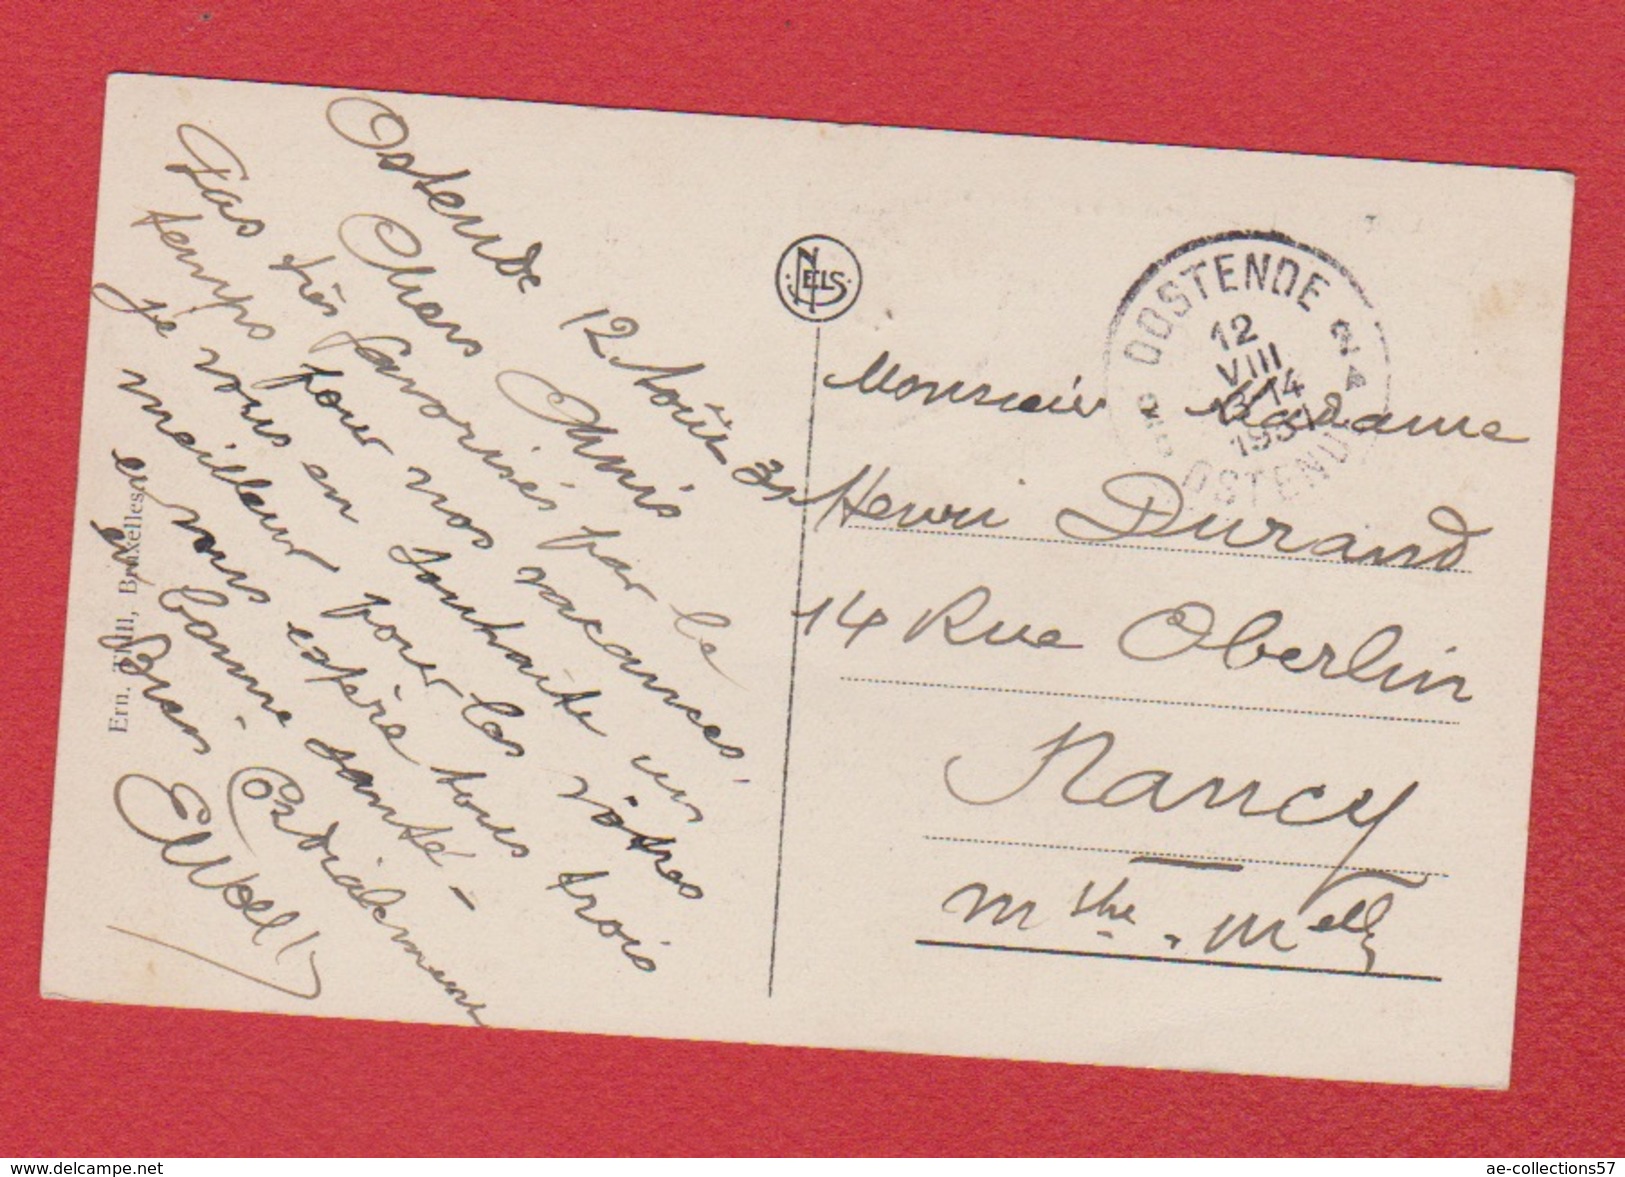 Ostende 12 Août 31
Chers Amis
Pas très favorisés par le
temps pour nos vacances,
je vous en souhaite un
meilleur pour les vôtres
et vous espère tous trois
en bonne santé -
Bien Cordialement
Ern. Thill, Bruxelles
NELS
OOSTENDE
12
VIII
13-14
1931
OSTENDE
Monsieur Madame
Henri Durand
14 Rue Oberlin
Nancy
Mthe. Melle
www.delcampe.net
ae-collections57